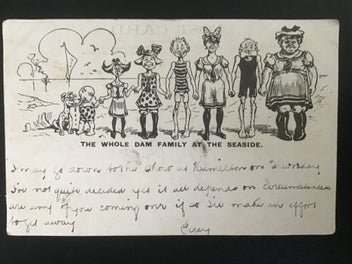 THE WHOLE DAM FAMILY AT THE SEASIDE.
I may go down to the Show at Hamilton on Thursday
I've not quite decided yet it all depends on circumstances
are any of you coming over if so I'll make an effort
to get away
Percy